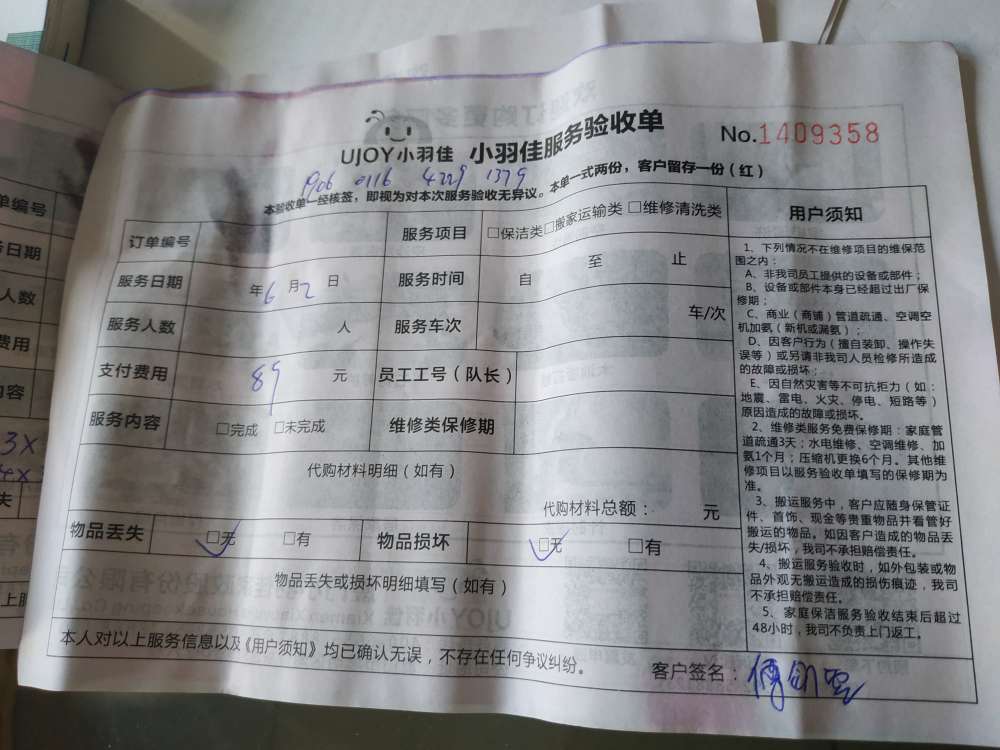 小羽佳服务验收单
No.1409358
UJOY小羽佳
1906 0116 4229 1379
本验收单一经核签，即视为对本次服务验收无异议。本单一式两份，客户留存一份（红）
订单编号
服务项目 □保洁类□搬家运输类 □维修清洗类
服务日期 年6月2日
服务时间 自 至 止
服务人数 人
服务车次 车/次
支付费用 89 元
员工工号（队长）
服务内容 □完成 □未完成
维修类保修期
代购材料明细（如有）
代购材料总额： 元
物品丢失 □无 □有
物品损坏 □无 □有
物品丢失或损坏明细填写（如有）
本人对以上服务信息以及《用户须知》均已确认无误，不存在任何争议纠纷。
客户签名：
用户须知
1、下列情况不在维修项目的维保范
围之内：
A、非我司员工提供的设备或部件；
B、设备或部件本身已经超过出厂保
修期；
C、商业（商铺）管道疏通、空调空
机加氨（新机或漏氨）；
D、因客户行为（擅自装卸、操作失
误等）或另请非我司人员检修所造成
的故障或损坏；
E、因自然灾害等不可抗拒力（如：
地震、雷电、火灾、停电、短路等）
原因造成的故障或损坏。
2、维修类服务免费保修期：家庭管
道疏通3天；水电维修、空调维修、加
氨1个月；压缩机更换6个月。其他维
修项目以服务验收单填写的保修期为
准。
3、搬运服务中，客户应随身保管证
件、首饰、现金等贵重物品并看管好
搬运的物品。如因客户造成的物品丢
失/损坏，我司不承担赔偿责任。
4、搬运服务验收时，如外包装或物
品外观无搬运造成的损伤痕迹，我司
不承担赔偿责任。
5、家庭保洁服务验收结束后超过
48小时，我司不负责上门返工。
单编号
务日期
人数
费用
内容
3X
4X
失